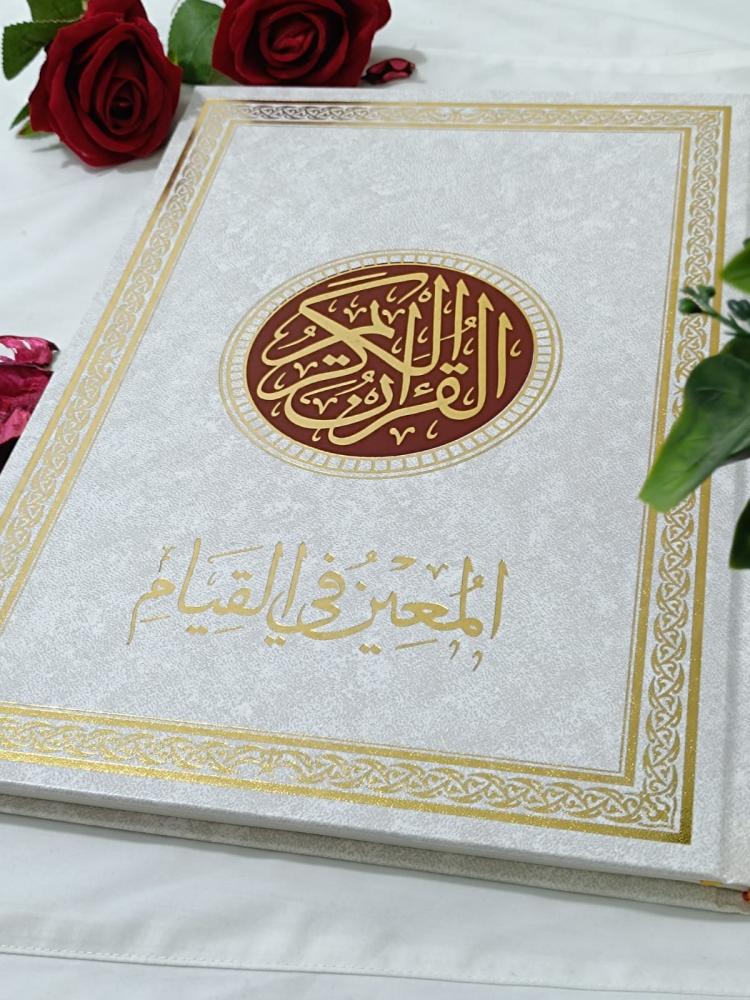 القرآن الكريم
المعين في القيام